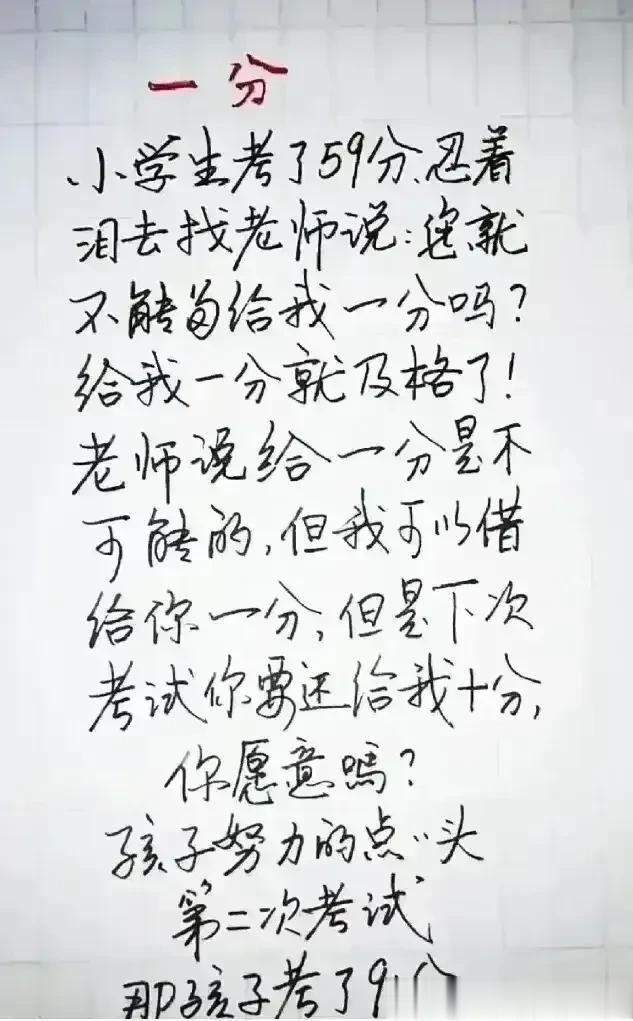 一分
小学生考了59分、忍着
泪去找老师说:您就
不能多给我一分吗?
给我一分就及格了!
老师说给一分是不
可能的,但我可以借
给你一分,但是下次
考试你要还给我十分,
你愿意嗎?
孩子努力的点点头
第二次考试
那孩子考了9